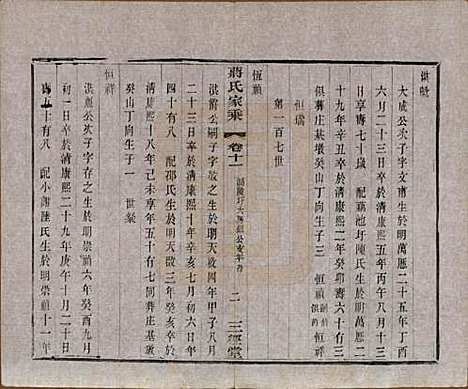 大成公次子字文甫生於明萬曆二十五年丁酉
六月二十三日卒於清康熙五年丙午八月十三
日享壽七十歲 配池圩陳氏生於明萬曆二
十九年辛丑卒於清康熙二年癸卯壽六十有三
俱葬庄基墩癸山丁向生子三 恆順 恆祥
恆瑞
第一百七世
恆順
洪 公嗣子字 生於明天啟四年甲子
二十三日卒於清康熙十年辛亥七月初六日年
四十有八 配邵氏生於明天啟三年癸亥卒於
康熙十八年己未五十有七同葬庄基墩
癸山丁向生子一 世
恒祥
洪 公次子字存之生於明崇禎六年癸酉九月
初一日卒於清康熙二十九年庚午十月二十日
壽五十有八 配小 陸氏生於明崇禎十一年
蔣氏家乘 卷十一
二 三徑堂